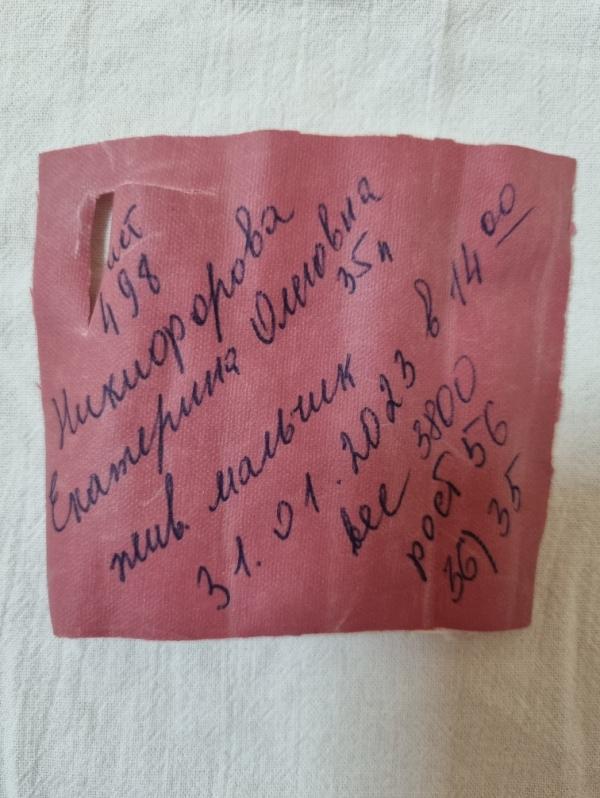 ист
498
Никифорова
Екатерина Олеговна
35л
жив. мальчик
31.01.2023 в 14 00
вес 3800
рост 56
35